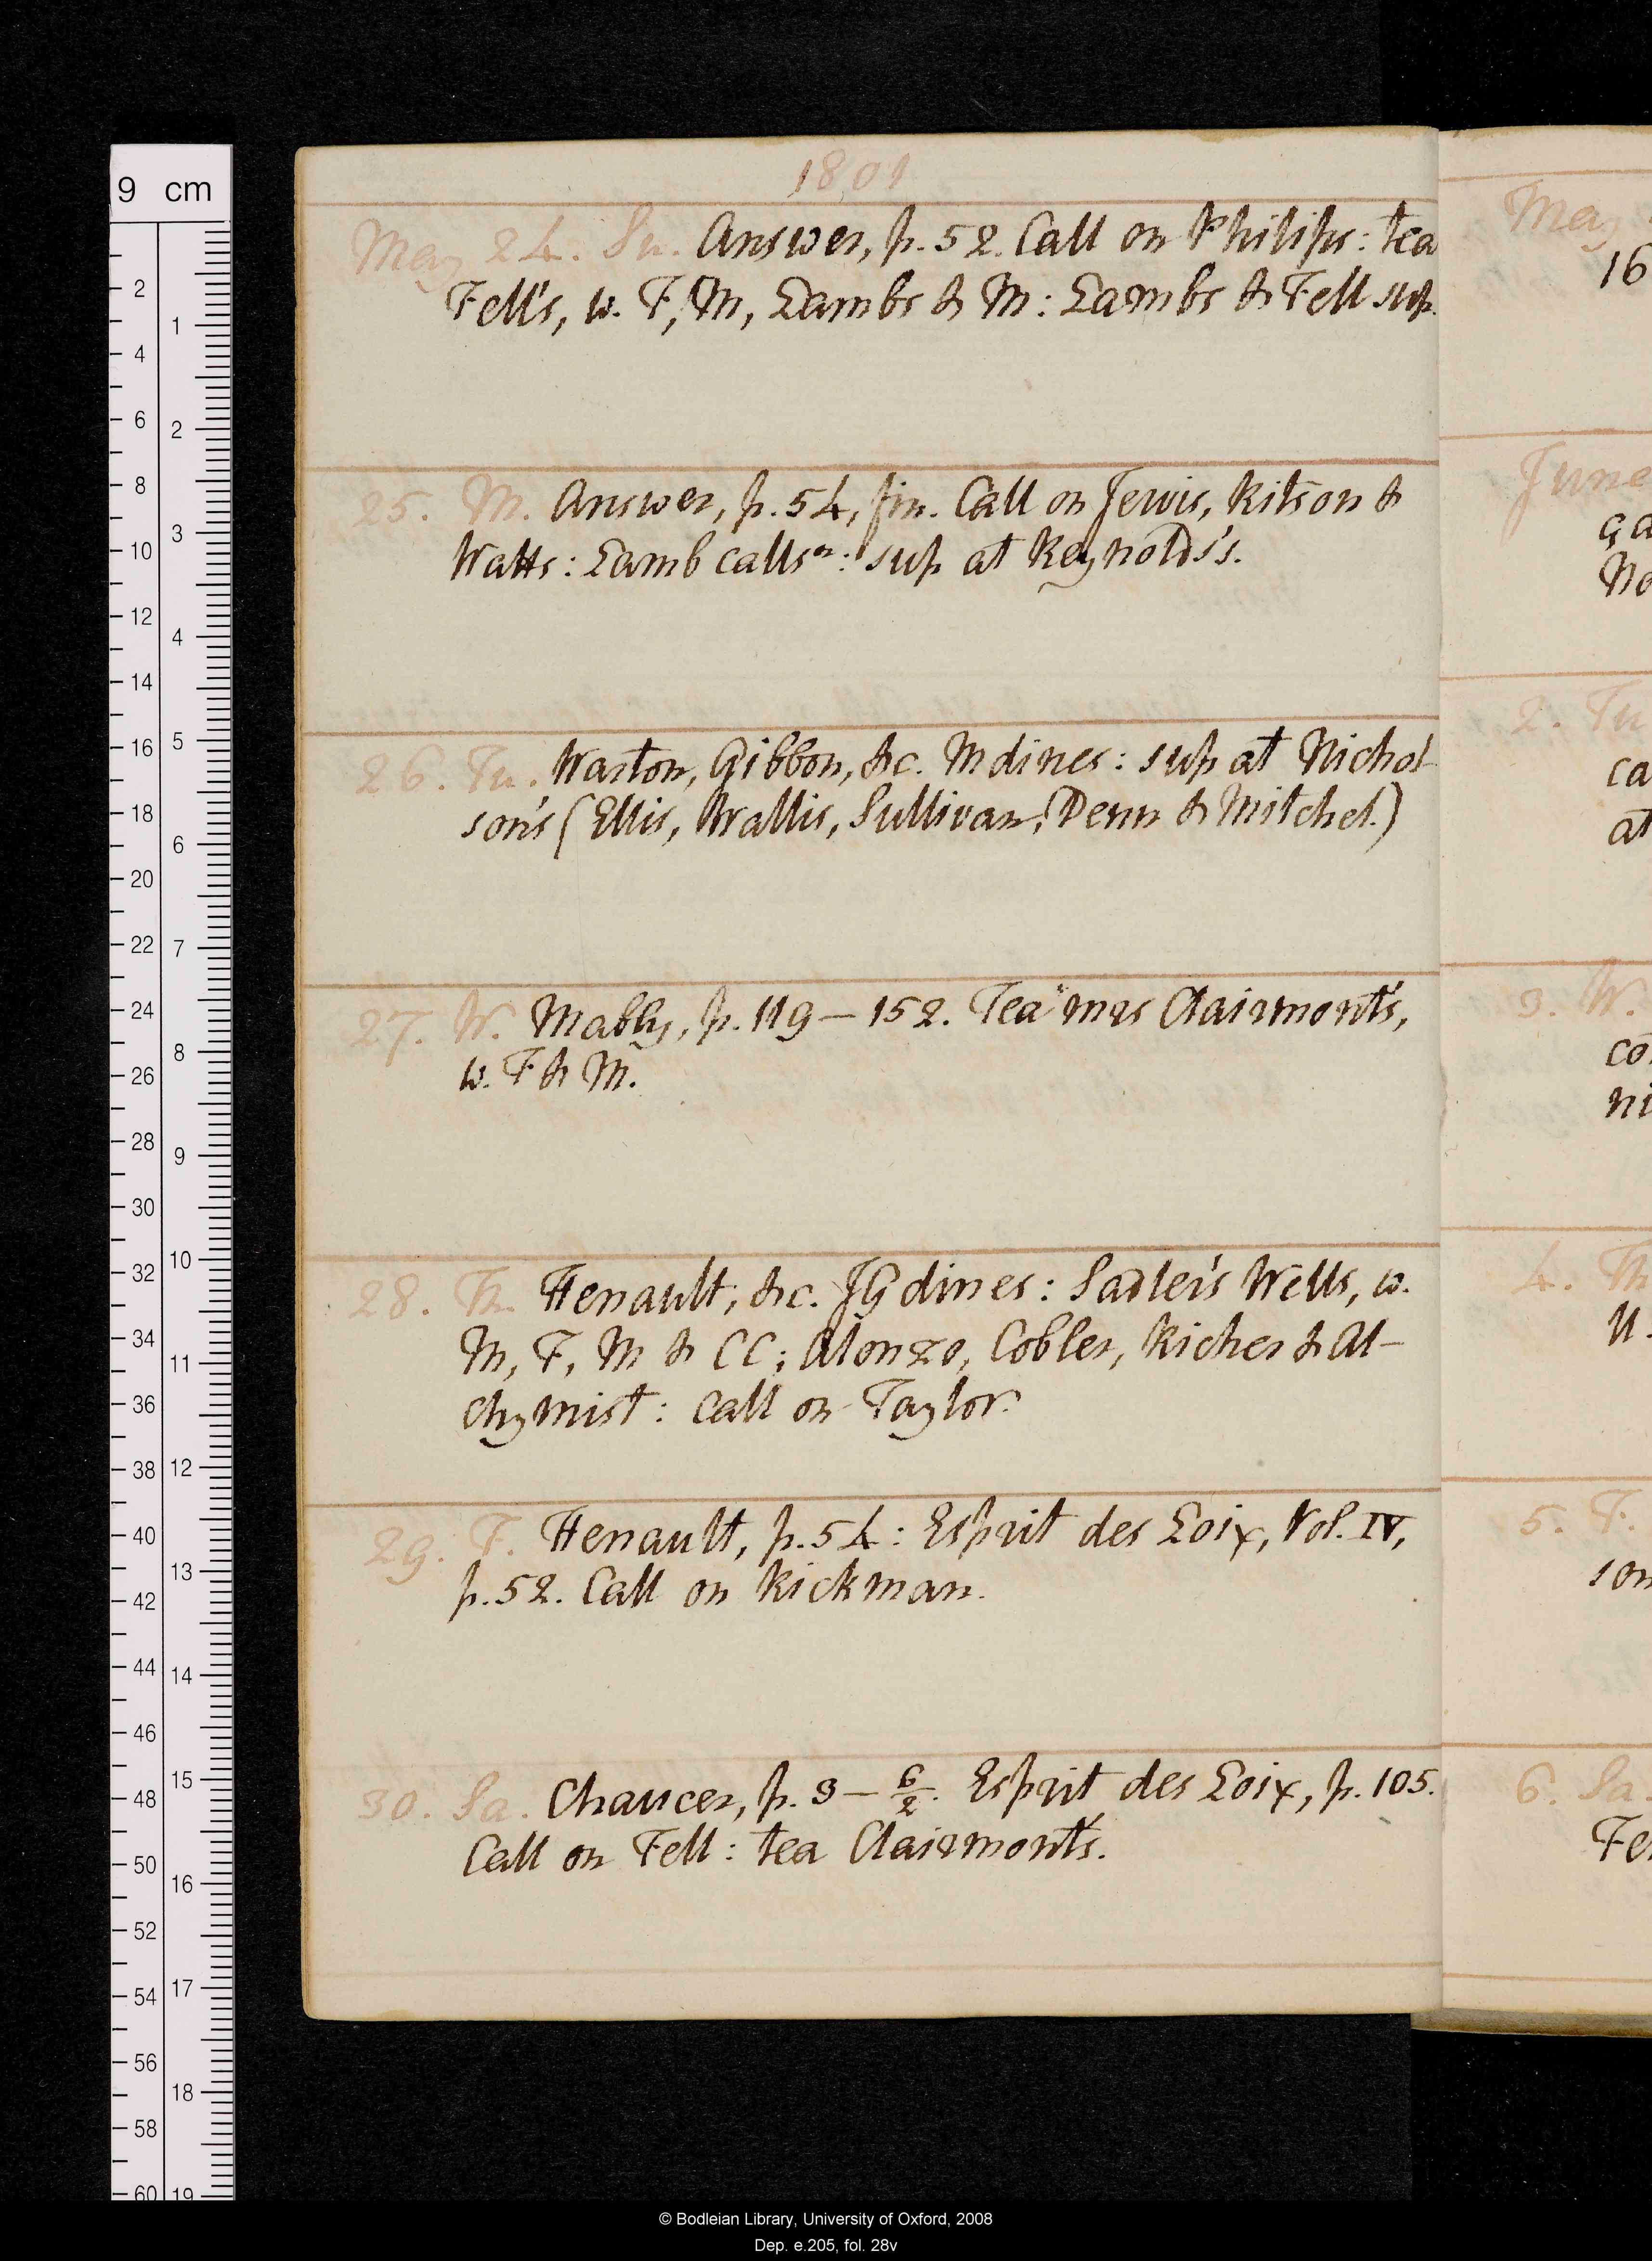 9 cm
1801
May 24. Su. Answer, p. 52. Call on Philips: tea
Fell's, w. F, M, Lambs & M: Lambs & Fell sup.
25. M. Answer, p. 54, fin. Call on Jewis, Ritson &
Watts: Lamb calls n: sup at Reynolds's.
26. Tu. Warton, Gibbon, &c. M dines: sup at Nichol
son's (Ellis, Wallis, Sullivan, Denn & Mitchel.)
27. W. Mably, p. 119–152. Tea Mrs Clairmont's,
w. F & M.
28. Th. Henault, &c. JG dines: Sadler's Wells, w.
M, F, M & CC; Alonzo, Cobler, Richer & Al-
chymist: call on Taylor.
29. F. Henault, p. 54: Esprit des Loix, Vol. IV,
p. 52. Call on Rickman.
30. Sa. Chaucer, p. 3 – 6/2. Esprit des Loix, p. 105.
Call on Fell: tea Clairmont's.
May
16
June
ga
No
2. Tu
ca
at
3. W.
co
ni
4. Th
5. F.
son
6. Sa.
Fel
2
4
6
8
10
12
14
16
18
20
22
24
26
28
30
32
34
36
38
40
42
44
46
48
50
52
54
56
58
60
1
2
3
4
5
6
7
8
9
10
11
12
13
14
15
16
17
18
19
© Bodleian Library, University of Oxford, 2008
Dep. e.205, fol. 28v